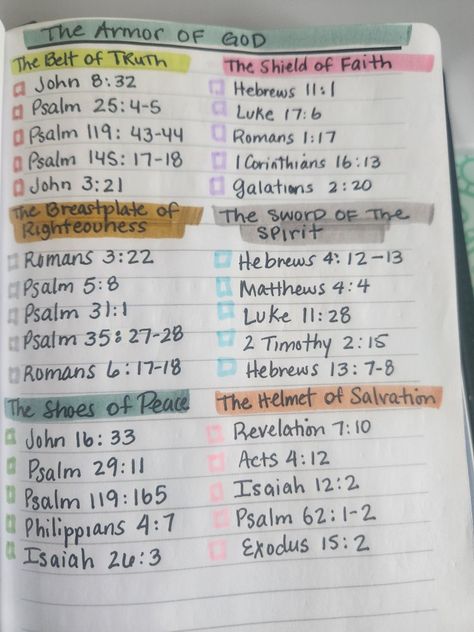 The Armor of God
The Belt of Truth
John 8:32
Psalm 25:4-5
Psalm 119: 43-44
Psalm 145: 17-18
John 3:21
The Shield of Faith
Hebrews 11:1
Luke 17:6
Romans 1:17
1 Corinthians 16:13
Galations 2:20
The Breastplate of
Righteouness
Romans 3:22
Psalm 5:8
Psalm 31:1
Psalm 35:27-28
Romans 6:17-18
The Sword of The
Spirit
Hebrews 4:12-13
Matthews 4:4
Luke 11:28
2 Timothy 2:15
Hebrews 13:7-8
The Shoes of Peace
John 16:33
Psalm 29:11
Psalm 119:165
Philippians 4:7
Isaiah 26:3
The Helmet of Salvation
Revelation 7:10
Acts 4:12
Isaiah 12:2
Psalm 62:1-2
Exodus 15:2